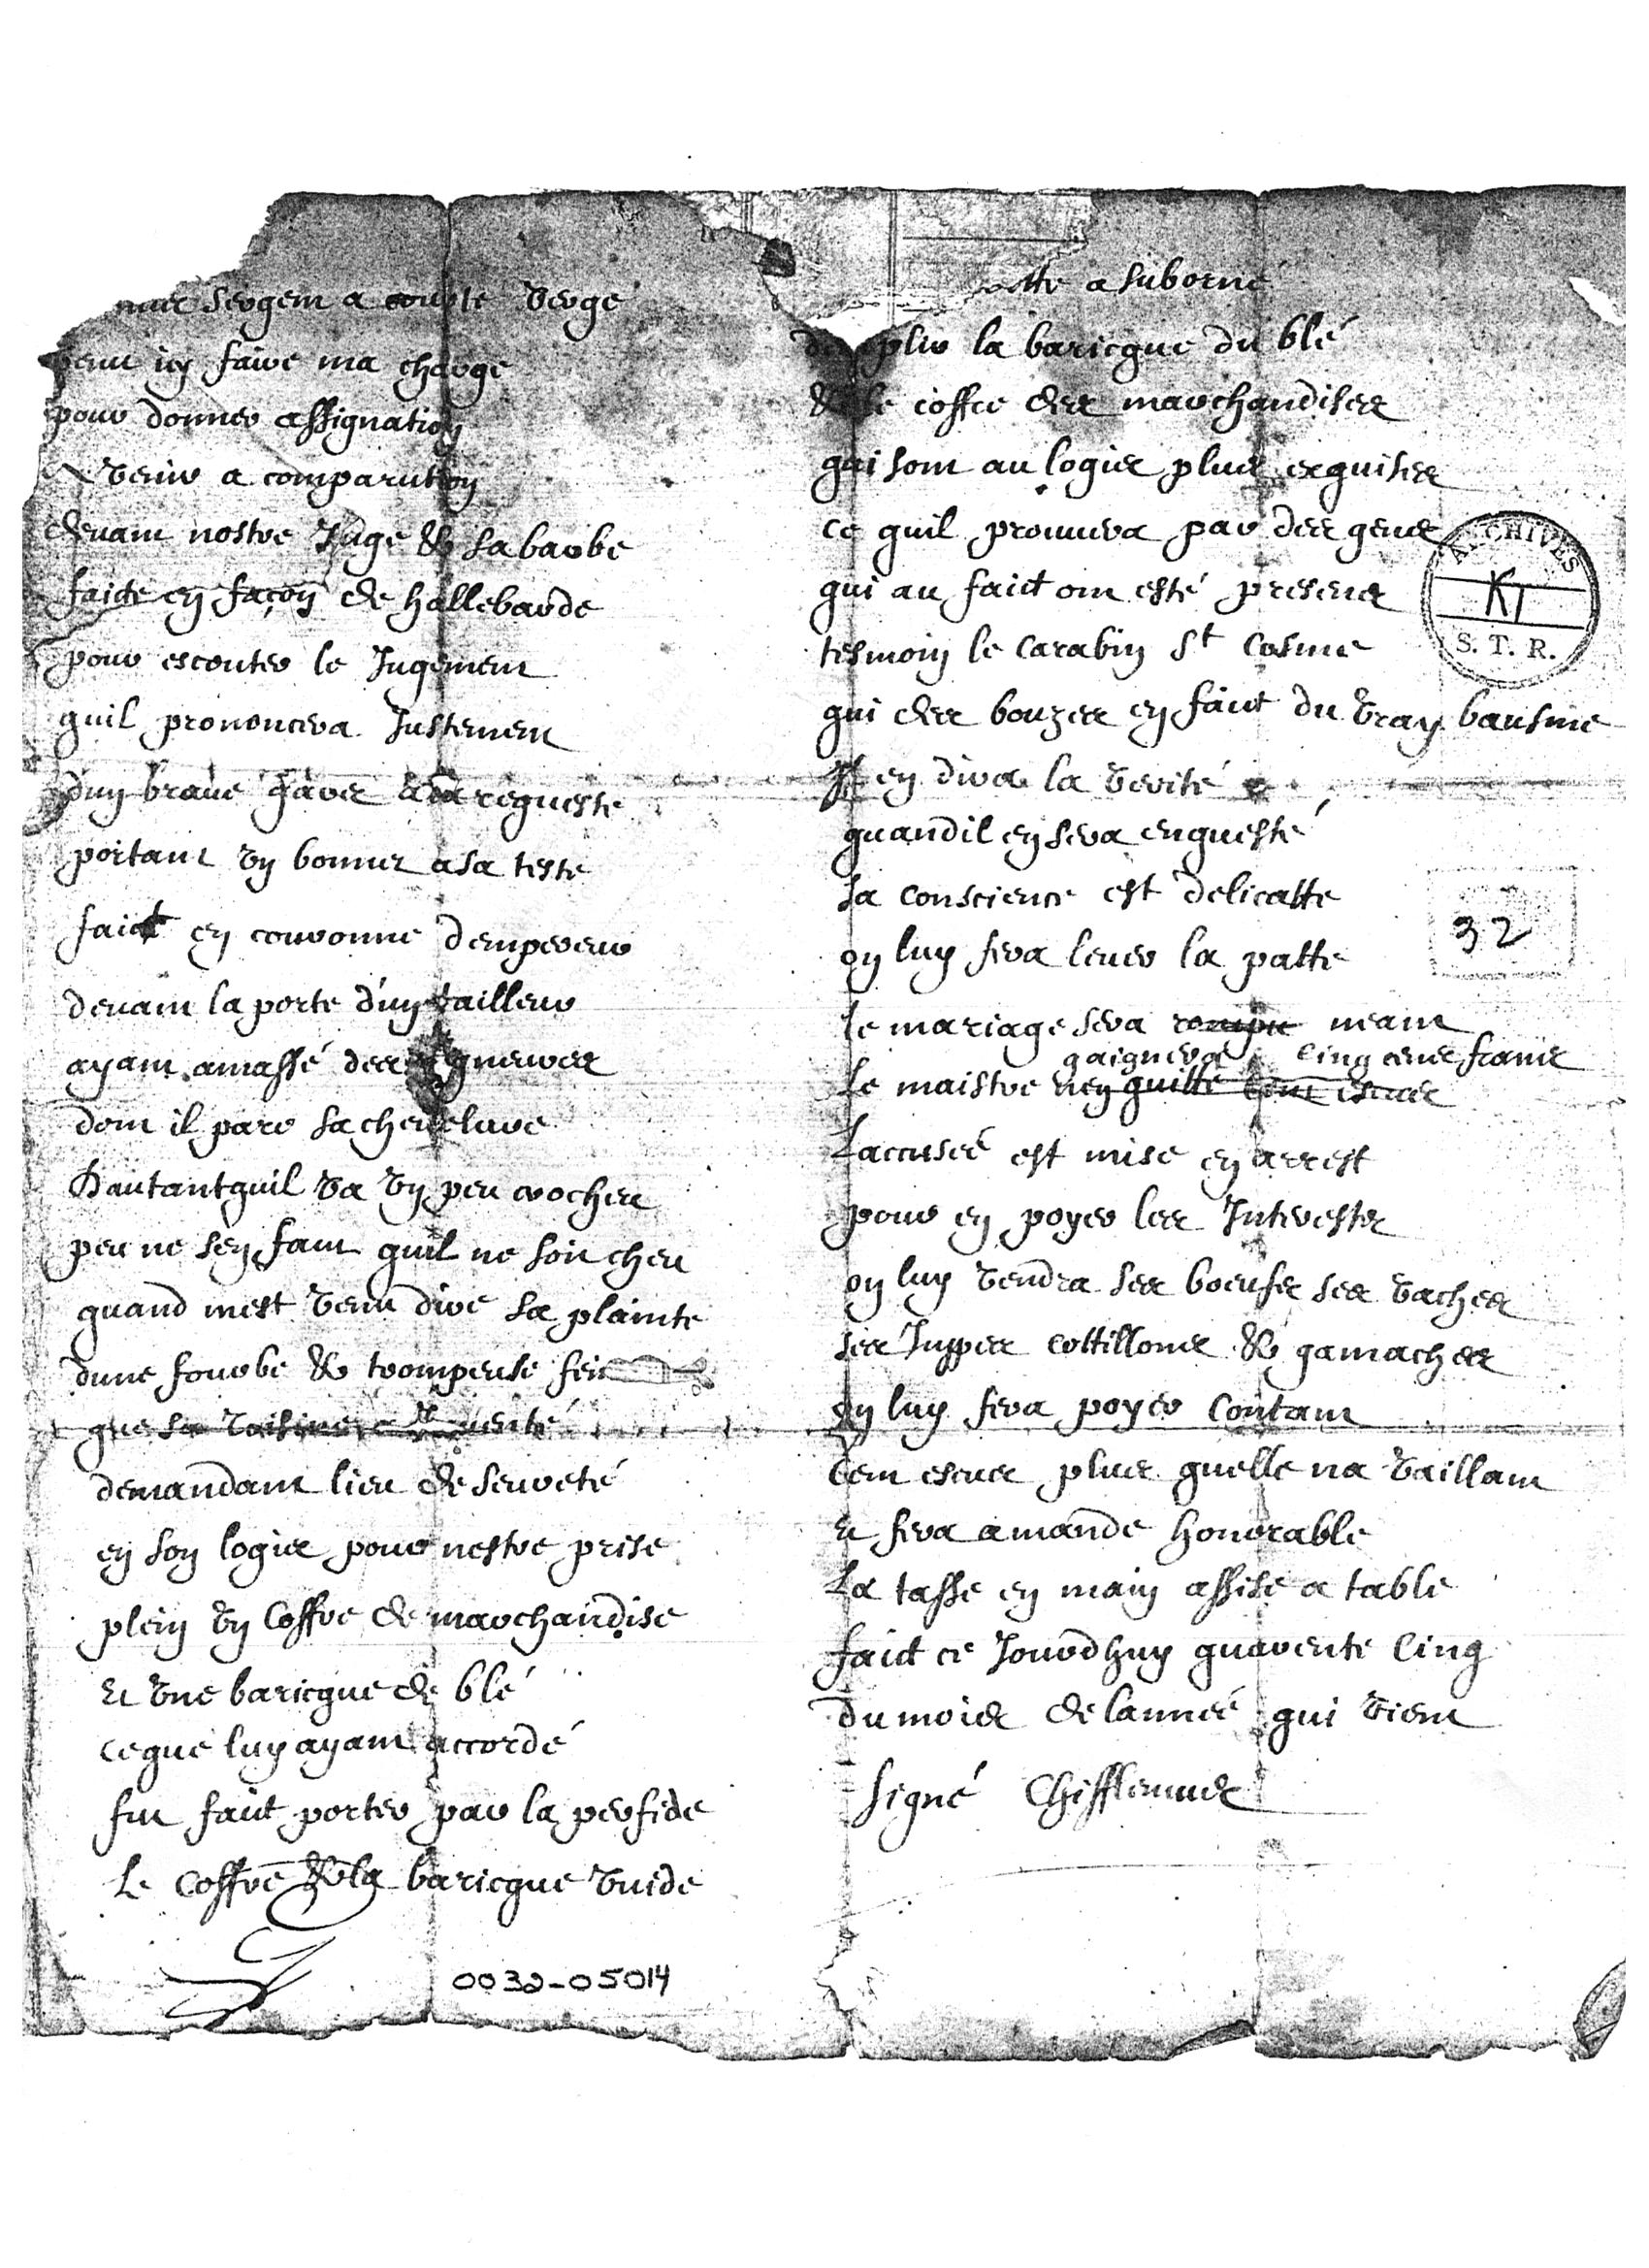 sergent a courte verge
venu icy faire ma charge
pour donner assignation
venir a comparution
devant nostre Juge & sa barbe
faicte en façon de hallebarde
pour escouter le Jugement
quil prononcera Justement
d'un brave gars a la requeste
portant un bonnet a sa teste
faict en couronne dempereur
devant la porte d'un tailleur
ayant amassé des
dont il pare sa chevelure
Dautant quil va un peu crochu
peu ne sen faut quil ne soit cheu
quand mest venu dire sa plainte
dune fourbe & trompeuse fein
que sa voisine
demandant lieu de seureté
en son logis pour nestre prise
plein un Coffre de marchandise
et une baricque de blé
ce que luy ayant accordé
fut faict porter par la perfide
le Coffre & la baricque vuide
0032-05014
a suborné
de plus la baricque du blé
& le coffre des marchandises
qui sont au logis plus exquises
ce quil prouvera par des gens
qui au faict ont esté presens
tesmoin le Carabin St Cosme
qui des bouzes en faict du vray bausme
Il en dira la verité
quand il en sera enquesté
sa conscience est delicatte
on luy fera lever la patte
le mariage sera rompu neant
gaignera cinq cens francs
le maistre nen quitte cent escus
Laccusée est mise en arrest
pour en poyer les Interests
on luy vendra ses boeufs ses vaches
ses Juppes cottillons & gamaches
on luy fera poyer Contant
Cent escus plus quelle na vaillant
et fera amande honorable
La tasse en main assise a table
faict ce Jourdhuy quarente Cinq
du mois de lannée qui vient
signé Chifflenmus
ARCHIVES
KI
S. T. R.
32